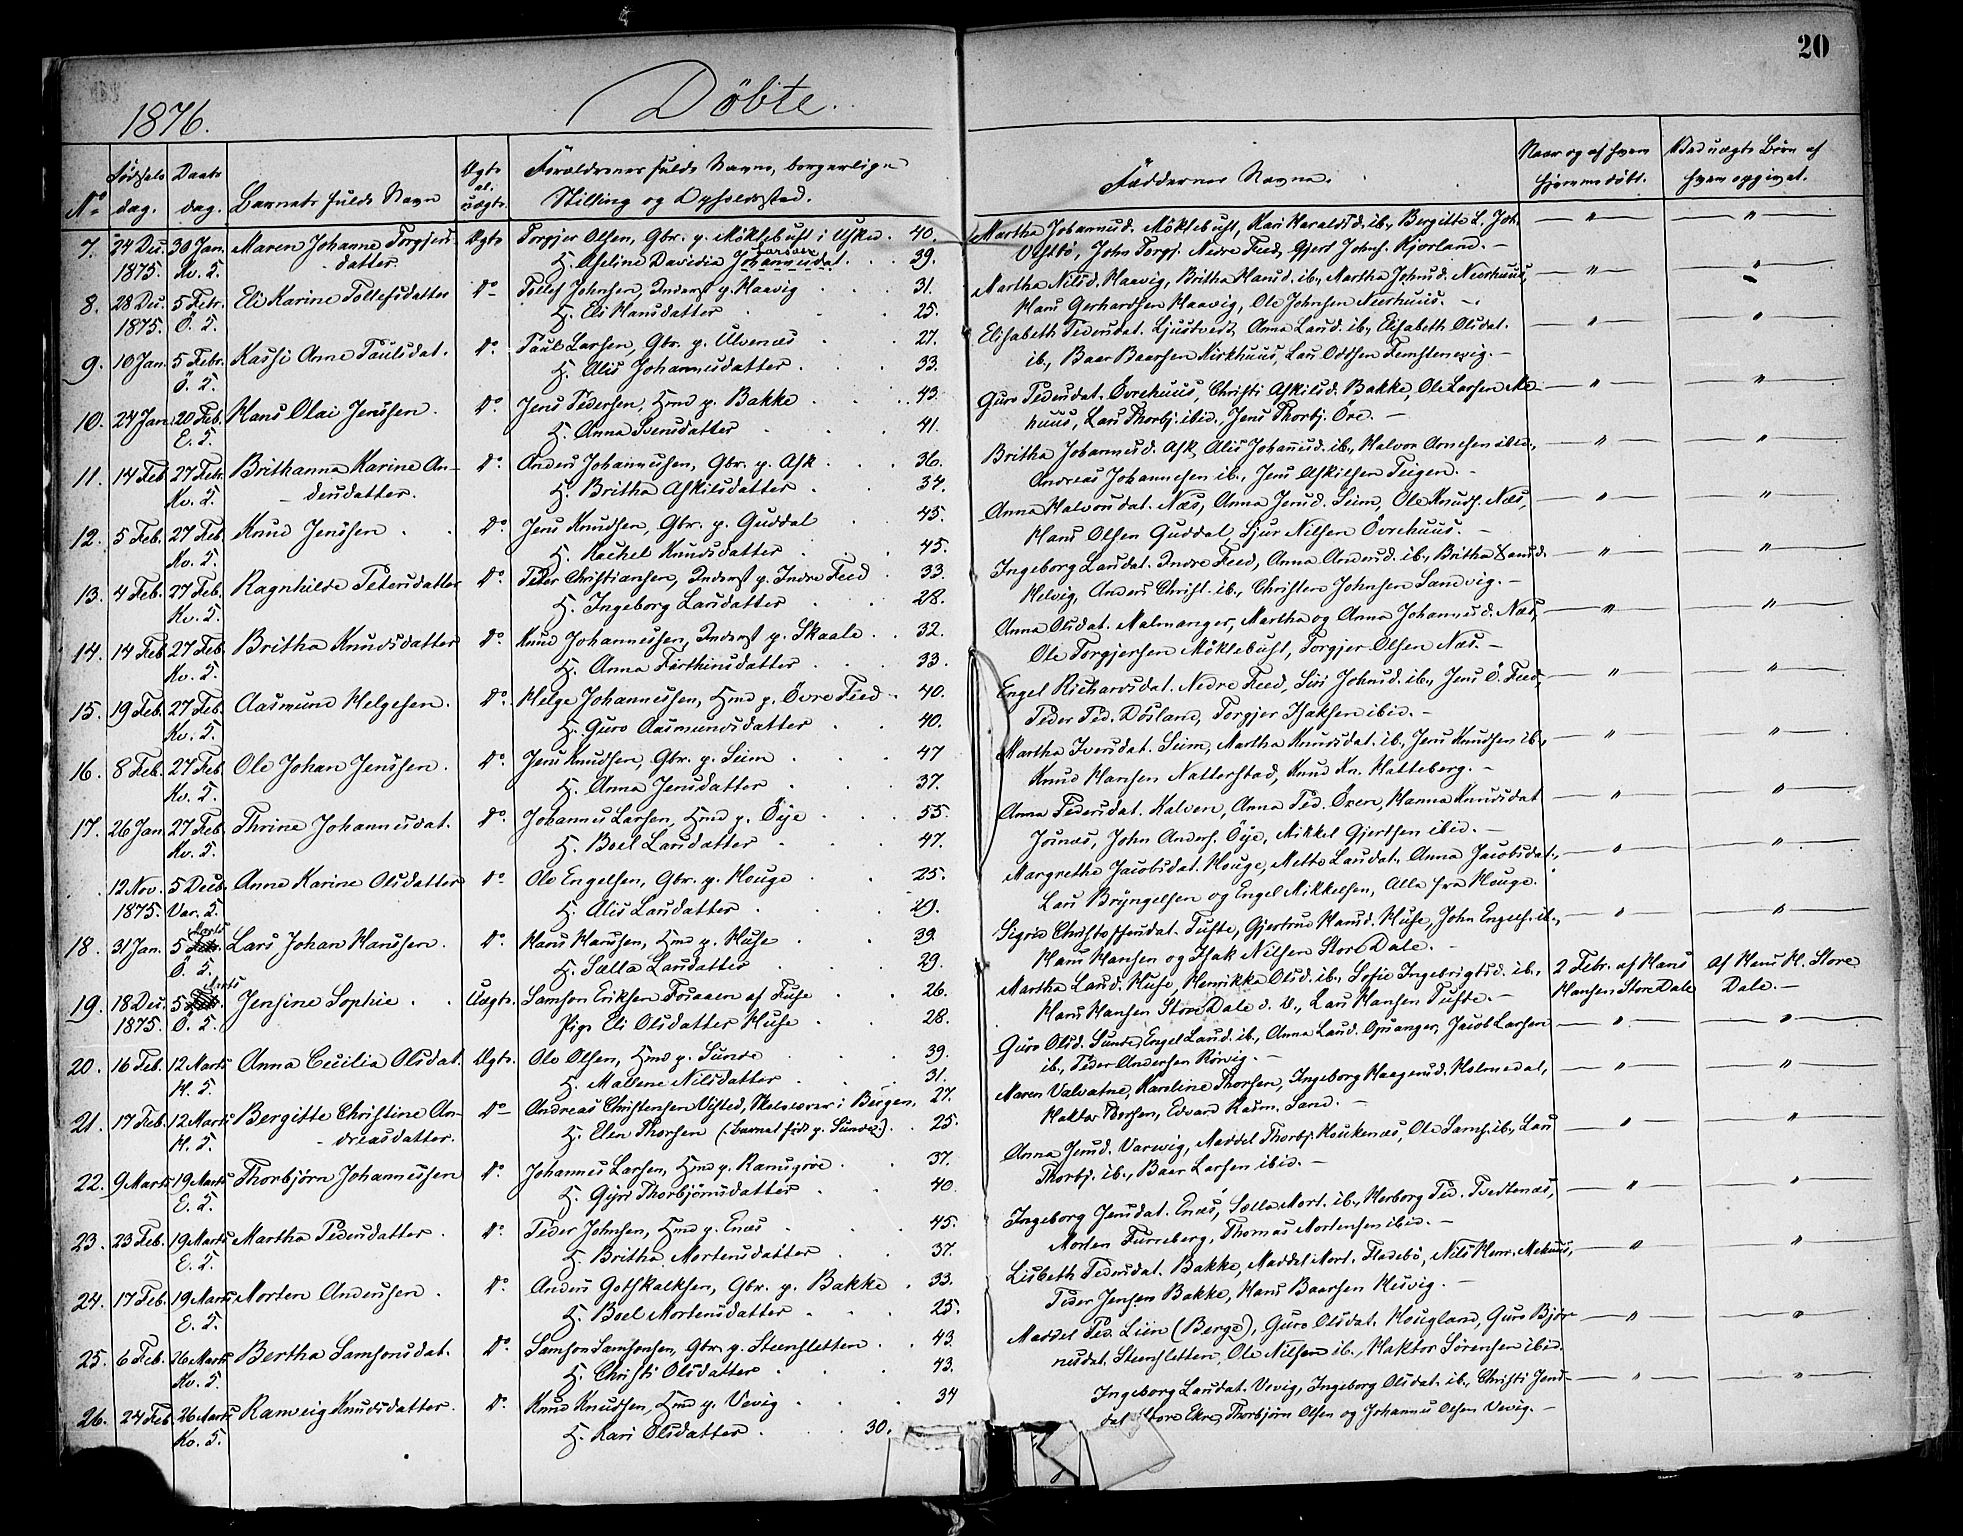 20
1876. Döbte.
No Fødsels dag. Daabs dag. Barnets fulde Navn Ægte el. uægte. Forældrenes fulde Navne, borgerlige Stilling og Opholdssted. Faddernes Navne. Naar og af hvem hjemmedøbt. Ved uægte Børn af hvem opgivet.
7. 24 Dec. 30 Jan. Maren Johanne Torgjers- Ægte Torgjer Olsen, Gbr. p. Möklebust i Usked. 40. Martha Johannesd. Möklebust, Kari Haraldsd. ib., Bergitte L. Joh.
1875. Kv. S. datter. H. Aseline Davidia Johannesdat. 39. John Torgj. Nedre Feed, Gjert Johns. Kjorland. —
8. 28 Dec. 5 Febr. Eli Karine Tollefsdatter Do Tollef Johnsen, Inderst p. Haavig 31. Martha Nilsd. Haavig, Britha Hansd. ib., Martha Johnsd. Neerhuus,
1875. Ö. S. H. Eli Hansdatter 25. Hans Gerhardsen Haavig, Ole Johnsen Neerhuus. —
9. 10 Jan. 5 Febr. Kassi Anne Paulsdat. Do Paul Larsen, Gbr. p. Ulvenæs 27. Elisabeth Pedersdat. Ljustvedt, Anna Larsd. ib., Elisabeth Olsdat.
Ö. S. H. Alis Johannesdatter 33. ib., Baar Baarsen Kirkhuus, Lars Oddsen Femstenevig. —
10. 24 Jan. 20 Feb. Hans Olai Jenssen. Do Jens Pedersen, Hmd p. Bakke 43. Guro Pedersdat. Övrehuus, Christi Askilsd. Bakke, Ole Larsen Me-
E. S. H. Anna Svensdatter 41. huus, Lars Thorbj. ibid. Jens Thorbj. Öre. —
11. 14 Feb. 27 Feb. Brithanna Karine An- Do Anders Johannessen, Gbr. p. Ask 36. Britha Johannesd. Ask, Alis Johannesd. ib., Halvor Arnesen ibid.,
Kv. S. dersdatter. H. Britha Askilsdatter 34. Andreas Johannesen ib., Jens Askilsen Teigen. —
12. 5 Feb. 27 Feb. Knud Jenssen Do Jens Knudsen, Gbr. p. Guddal 45. Anna Halvorsdat. Næs, Anna Jensd. Seim, Ole Knuds. Næs,
Kv. S. H. Rachel Knudsdatter 45. Hans Olsen Guddal, Sjur Nilsen Övrehuus. —
13. 4 Feb. 27 Feb. Ragnhilde Petersdatter Do Peder Christiansen, Inderst p. Indre Feed 33. Ingeborg Larsdat. Indre Feed, Anna Andersd. ib., Britha
Kv. S. H. Ingeborg Larsdatter 28. Helvig, Anders Christ. ib., Christen Johnsen Sandvig. —
14. 14 Feb. 27 Feb. Britha Knudsdatter Do Knud Johannessen, Inderst p. Skaale 32. Anna Olsdat. Malmanger, Martha og Anna Johannesd. Næs,
Kv. S. H. Anna 33. Ole Torgjersen Möklebust, Torgjer Olsen Næs. —
15. 19 Feb. 27 Feb. Aasmund Helgesen. Do Helge Johannessen, Hmd p. Övre Feed 40. Engel Richardsdat. Nedre Feed, Siri Johnsd. ib., Jens Ö. Feed,
Kv. S. H. Guro Aasmundsdatter 40. Peder Ped. Døsland, Torgjer Isaksen ibid. —
16. 8 Feb. 27 Feb. Ole Johan Jenssen. Do Jens Knudsen, Gbr. p. Seim 47 Martha Iversdat. Seim, Martha Knudsdat. ib., Jens Knudsen ib.,
Kv. S. H. Anna Jensdatter 37. Knud Hansen Natterstad, Knud Kn. Hatteberg. —
17. 26 Jan. 27 Feb. Thrine Johannesdat. Do Johannes Larsen, Hmd p. Öye 55. Anna Pedersdat. Kalven, Anna Ped. Öxen, Hanna Knudsdat
Kv. S. H. Boel Larsdatter 47. John Anders. Öye, Mikkel Gjertsen ibid. —
12 Nov. 5 Decb. Anne Karine Olsdatter Do Ole Engelsen, Gbr. p. Houge 25. Margrethe Jacobsdat. Houge, Mette Larsdat., Anna Jacobsdat.,
1875. Var. S. H. Alis Larsdatter 29. Lars Bryngelsen og Engel Mikkelsen, Alle fra Houge.
18. 31 Jan. 5 Marts Lars Johan Hanssen. Do Hans Hanssen, Hmd p. Huse 39. Sigrid Christophersdat. Tufte, Gjertrud Hansd. Huse, John Engels. ib.,
Ö. S. H. Sælla Larsdatter 29. Hans Hansen og Isak Nilsen Store Dale. —
19. 18 Dec. 5 Marts Jensine Sophie Uægte. Samson Eriksen Fosaaen af Fuse 26. Martha Larsd. Huse, Henrikka Olsd. ib., Sofie Ingebrigtsd. ib., 2 Febr. af Hans Af Hans H. Store
1875. Ö. S. Pige Eli Olsdatter Huse 28. Hans Hansen Store Dale d. Æ., Lars Hansen Tufte. — Hansen Store Dale Dale. —
20. 16 Feb. 12 Marts Anna Cecilia Olsdat. Ægte. Ole Olsen, Hmd p. Sunde 39. Guro Olsd. Sunde, Engel Larsd. ib., Anna Larsd. Opsanger, Jacob Larsen
H. S. H. Mallene Nilsdatter 31. ib., Peder Andersen Rörvig. —
21. 17 Feb. 12 Marts Bergitte Christine An- Do Andreas Christensen Visted, Skolelærer i Bergen, 27. Maren Valvatne, Karoline Thorsen, Ingeborg Haagensd. Holmedal,
H. S. dreasdatter. H. Elen Thorsen (: Barnet født p. Sunde:). 25. Haktor Thorsen, Edvard Rasm. Sand. —
22. 9 Marts 19 Marts Thorbjørn Johannessen Do Johannes Larsen, Hmd p. Ramsgröe 37. Anna Jensd. Varvvig, Maddel Thorbj. Houkenæs, Ole Sams. ib., Lars
E. S. H. Gyri Thorbjörnsdatter 40. Thorbj. ib., Baar Larsen ibid. —
23. 23 Feb. 19 Marts Martha Pedersdatter. Do Peder Johnsen, Hmd p. Enæs 45. Ingeborg Jensdat. Enæs, Sælla Mort. ib., Herborg Ped. Tvedtenæs,
E. S. H. Britha Mortensdatter 37. Morten Furreberg, Thomas Mortensen ibid. —
24. 17 Feb. 19 Marts Morten Anderssen. Do Anders Gotskalksen, Gbr. p. Bakke 33. Lisbeth Pedersdat. Bakke, Maddel Mort. Fladebö, Nils Henr. Mehuus,
E. S. H. Boel Mortensdatter 25. Peder Jensen Bakke, Hans Baarsen Husvig. —
25. 6 Feb. 26 Marts Bertha Samsonsdat. Do Samson Samsonsen, Gbr. p. Steensletten 43. Maddel Ped. Liin (Berge), Guro Olsdat. Hougland, Guro Björ-
Kv. S. H. Christi Olsdatter 43. nsdat. Steensletten, Ole Nilsen ib., Haktor Sørensen ibid.
26. 24 Feb. 26 Marts Ranveig Knudsdatter. Do Knud Knudsen, Hmd p. Vevig 34 Ingeborg Larsdat. Vevig, Ingeborg Olsdat. ib., Christi Jens-
Kv. S. H. Kari Olsdatter 30. dat. Store Ekre, Thorbjørn Olsen og Johannes Olsen Vevig. —